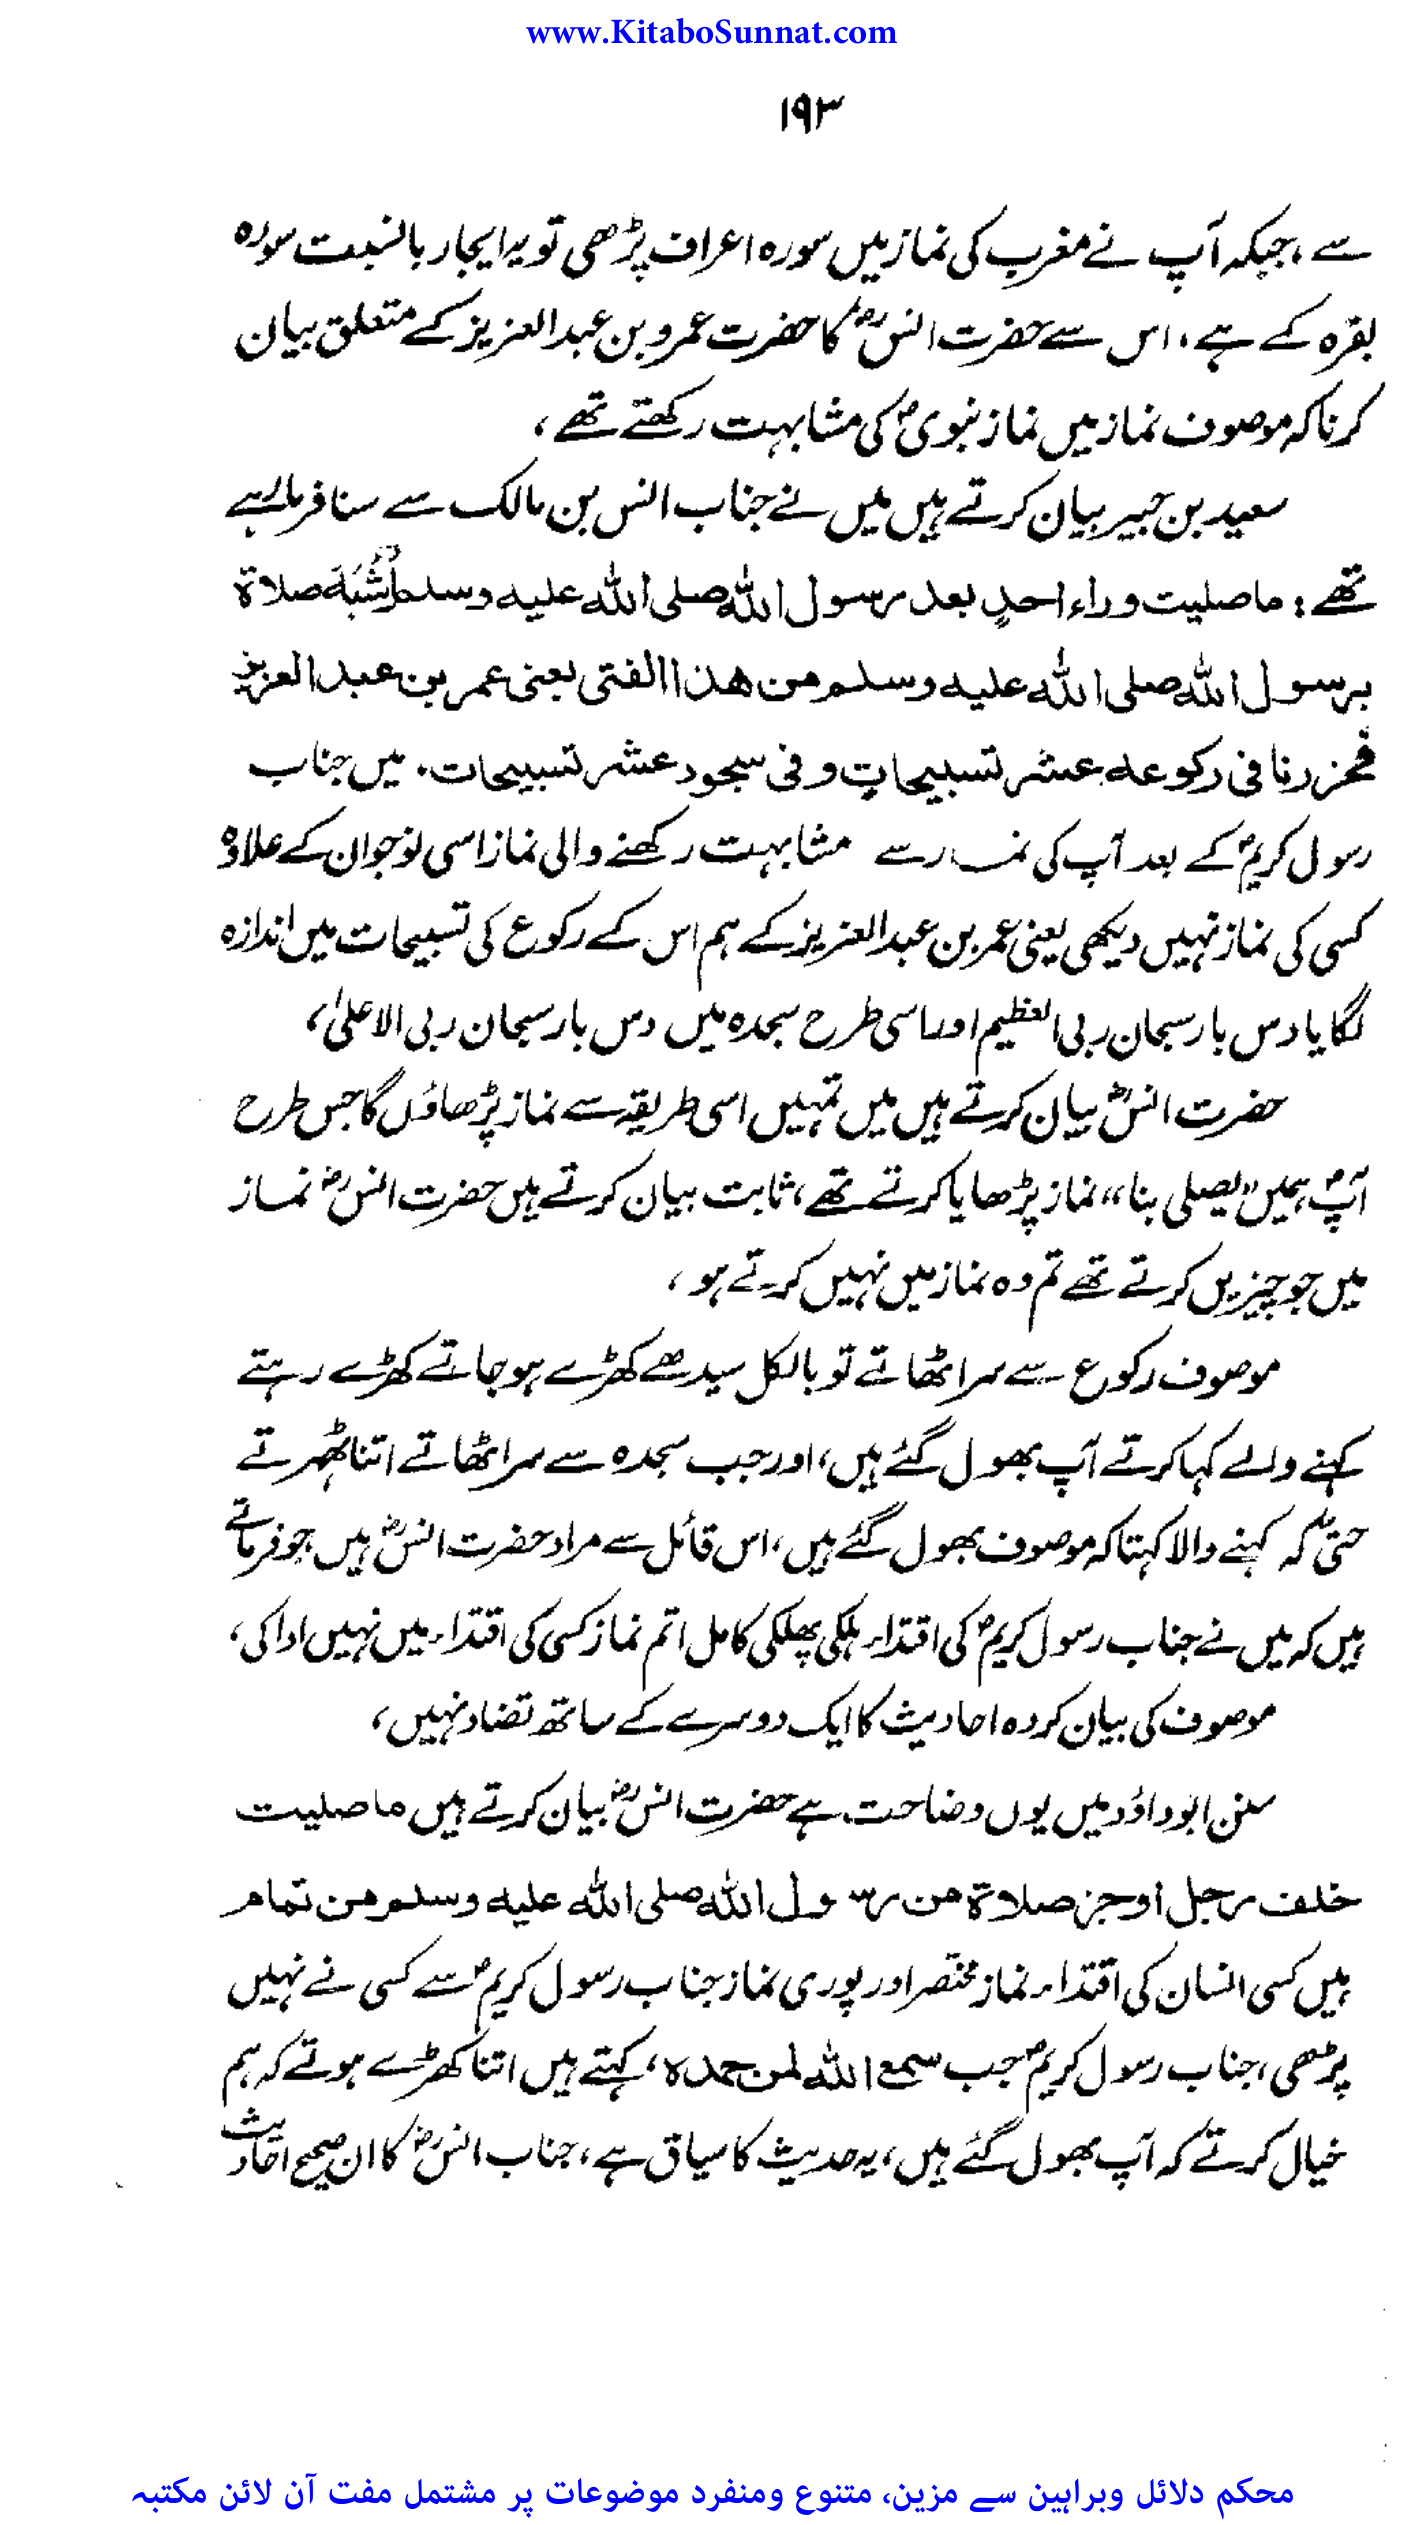 www.KitaboSunnat.com
۱۹۳
سے ، جبکہ آپ نے مغرب کی نماز میں سورہ اعراف پڑھی تو یہ ایجار بالنسبت سورہ
بقرہ کے ہے ، اس سے حضرت انسؓ کا حضرت عمرو بن عبد العزیز کے متعلق بیان
کرنا کہ موصوف نماز میں نماز نبویؐ کی مشابہت رکھتے تھے ،
سعید بن جبیر بیان کرتے ہیں میں نے جناب انس بن مالک سے سنا فرما رہے
تھے : ما صلیت وراء احدٍ بعد رسول الله صلی الله علیه وسلم اَشْبَهَ صلاة
برسول الله صلی الله علیه وسلم من هذا الفتی یعنی عمر بن عبد العزیز
فحزرنا فی رکوعه عشر تسبیحاتٍ و فی سجود عشر تسبیحات ۔ میں جناب
رسول کریمؐ کے بعد آپ کی نماز سے مشابہت رکھنے والی نماز اسی نوجوان کے علاوہ
کسی کی نماز نہیں دیکھی یعنی عمر بن عبد العزیز کے ہم اس کے رکوع کی تسبیحات میں اندازہ
لگایا دس بار سبحان ربی العظیم اور اسی طرح سجدہ میں دس بار سبحان ربی الاعلیٰ ،
حضرت انسؓ بیان کرتے ہیں میں تمہیں اسی طریقہ سے نماز پڑھاؤں گا جس طرح
آپؐ ہمیں ”یصلی بنا“ نماز پڑھایا کرتے تھے ، ثابت بیان کرتے ہیں حضرت انسؓ نماز
میں جو چیزیں کرتے تھے تم وہ نماز میں نہیں کرتے ہو ،
موصوف رکوع سے سر اٹھاتے تو بالکل سیدھے کھڑے ہو جاتے کھڑے رہتے
کہنے والے کہا کرتے آپ بھول گئے ہیں ، اور جب سجدہ سے سر اٹھاتے اتنا ٹھہرتے
حتیٰ کہ کہنے والا کہتا کہ موصوف بھول گئے ہیں ، اس قائل سے مراد حضرت انسؓ ہیں جو فرماتے
ہیں کہ میں نے جناب رسول کریمؐ کی اقتداء ہلکی پھلکی کامل اتم نماز کسی کی اقتداء میں نہیں ادا کی ،
موصوف کی بیان کردہ احادیث کا ایک دوسرے کے ساتھ تضاد نہیں ،
سنن ابو داؤد میں یوں وضاحت ہے حضرت انسؓ بیان کرتے ہیں ما صلیت
خلف رجل اوجز صلاة من رسول الله صلی الله علیه وسلم من تمام
ہیں کسی انسان کی اقتداء نماز مختصر اور پوری نماز جناب رسول کریمؐ سے کسی نے نہیں
پڑھی ، جناب رسول کریمؐ جب سمع الله لمن حمده ، کہتے ہیں اتنا کھڑے ہوتے کہ ہم
خیال کرتے کہ آپ بھول گئے ہیں ، یہ حدیث کا سیاق ہے ، جناب انسؓ کا ان صحیح احادیث
محکم دلائل وبراہین سے مزین، متنوع ومنفرد موضوعات پر مشتمل مفت آن لائن مکتبہ